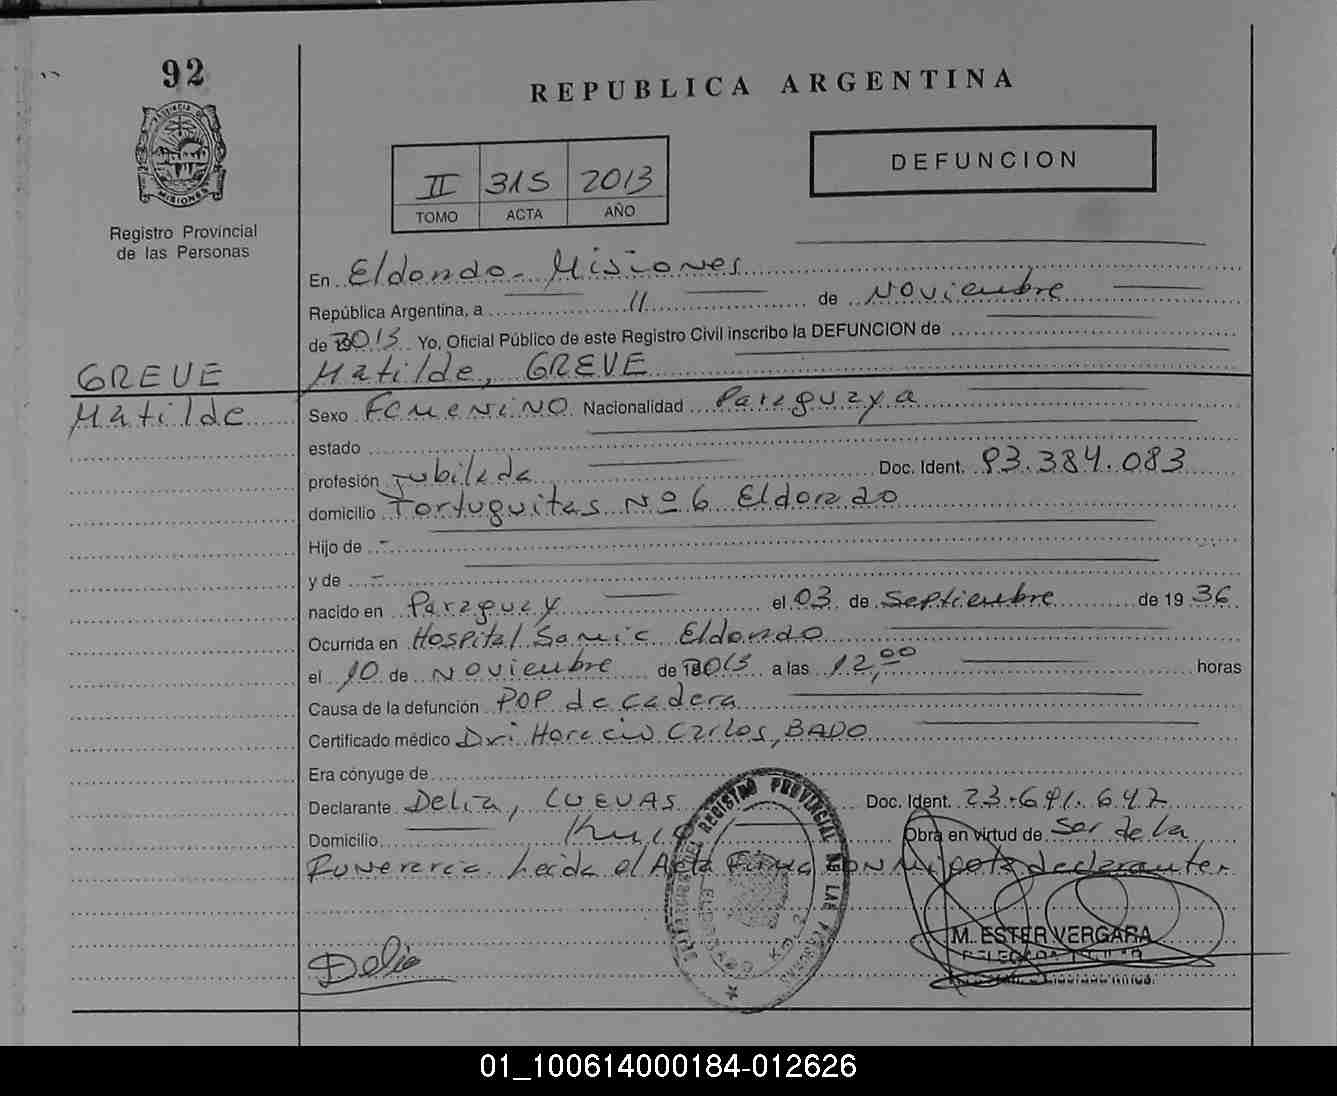 92
REPUBLICA ARGENTINA
DEFUNCION
II 315 2013
TOMO ACTA AÑO
PROVINCIA DE
MISIONES
Registro Provincial
de las Personas
En Eldorado - Misiones
República Argentina, a 11 de Noviembre
de 2013 Yo, Oficial Público de este Registro Civil inscribo la DEFUNCION de
GREVE
Matilde, GREVE
Matilde
Sexo Femenino Nacionalidad Paraguaya
estado
profesión Jubilada Doc. Ident. 93.384.083
domicilio Tortuguitas Nº 6 Eldorado
Hijo de -
y de -
nacido en Paraguay el 03 de Septiembre de 1936
Ocurrida en Hospital Samic Eldorado
el 10 de Noviembre de 2013 a las 12,00 horas
Causa de la defunción POP de cadera
Certificado médico Dr: Horacio Carlos, BADO
Era cónyuge de
Declarante Delia, CUEVAS Doc. Ident. 23.691.647
Domicilio Obra en virtud de Ser de la
Funeraria. Leida el Acta Firma CON Migo la declarante.
REGISTRO PROVINCIAL DE LAS PERSONAS
ELDORADO KM. 2
Delia
M. ESTER VERGARA
DELEGADA TITULAR
01_100614000184-012626